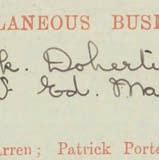 LLANEOUS BUSI
k. Doherti
Ed. Ma
arren; Patrick Porte